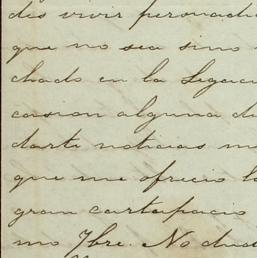 dis vivir peronadi
que no sea sino
chado en la Legaci
casion alguna de
darte noticias m
que me ofrecio lo
gran cartapacio
mo 7bre. No duda